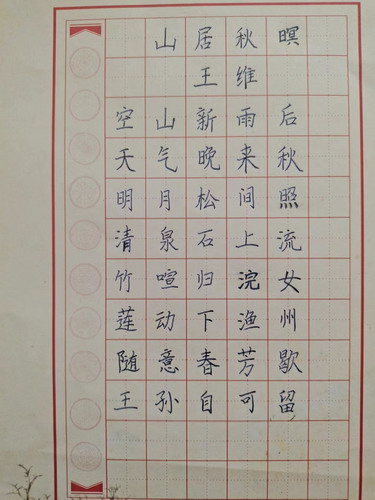 山居秋暝
王维
空山新雨后
天气晚来秋
明月松间照
清泉石上流
竹喧归浣女
莲动下渔州
随意春芳歇
王孙自可留